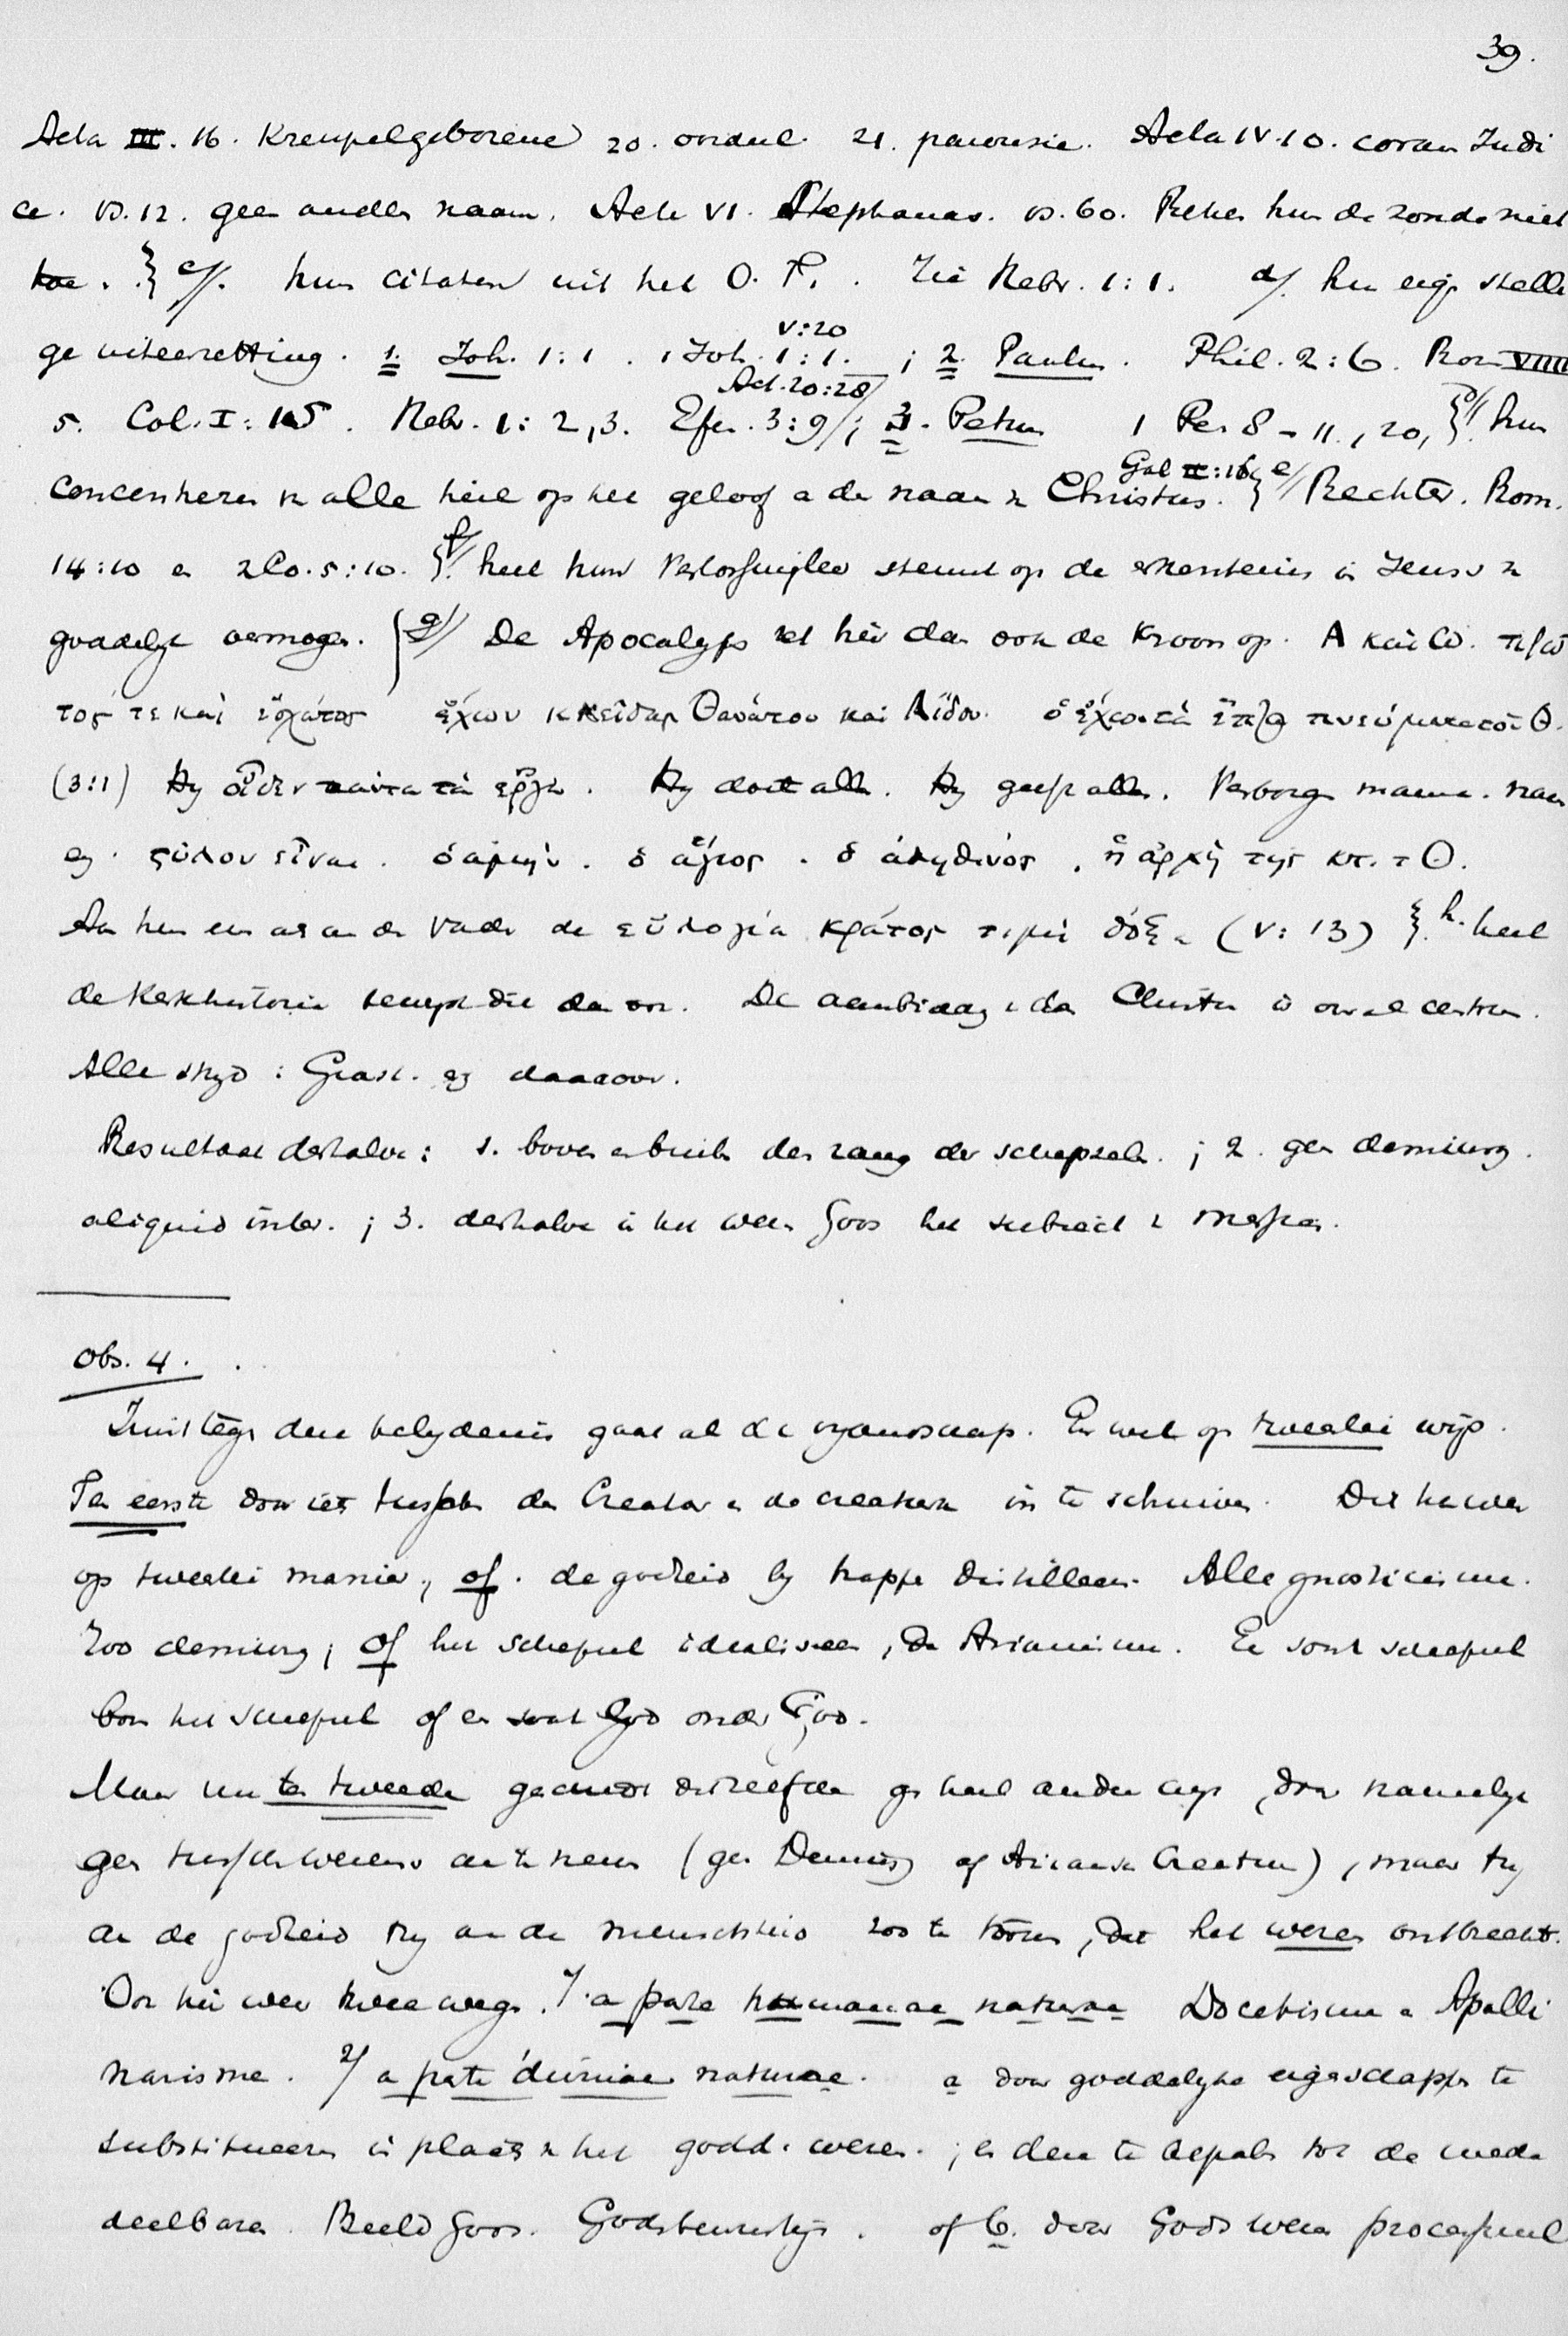 39.
Acta III. 16. Kreupelgeborene 20. oordeel. 21. parousie. Acta IV.10. coram Judi
ce. vs. 12. geen ander naam. Acta VI. Stephanas. vs. 60. Reken hun de zonde niet
toe. } c/. hun citaten uit het O. T. . Zie Hebr. 1:1. d/. hun eig. stelli
ge uiteenzetting. 1. Joh. 1:1. 1 Joh. 1:1. V:20 ; 2. Paulus. Phil. 2:6. Rom VIIII
5. Col. I:15. Hebr. 1:2,3. Efes. 3:9/ Act. 20:28/ ; 3. Petrus 1 Pe. 8-11., 20, } hun
concentreren v alle heil op het geloof a de naam v Christus. Gal II:16 } e/ Rechter. Rom.
14:10 e 2 Co. 5:10. } f/ heel hun steunt op de erkentenis in Jezus v
goddelijk vermogen. { g/ De Apocalyps zet hier dan ook de kroon op. Α καὶ Ω. πρῶ
τος τε καὶ ἔσχατος ἔχων κλεῖδας Θανάτου καὶ Ἁίδου. ὁ ἔχων τὰ ἑπτὰ πνεύματα τοῦ Θ.
(3:1) Hy οἶδεν πάντα τὰ ἔργα. Hy doet alles. Hy geeft alles. Verborgen manna. naam
eg. ξύλον εἶναι. ὁ ἀμήν. ὁ ἅγιος. ὁ ἀληθινός. ἡ ἀρχὴ τῆς κτ. τ Θ.
Aan hem en aan de Vader de εὐλογία κράτος τιμὴ δόξα (V:13) } h. heel
de Kerkhistorie dit dan ook. De aanbidding v den Christus is overal centrum.
Alle stryd: daarover.
Resultaat derhalve: 1. boven en buiten den rang der schepselen. ; 2. geen demiurg.
aliquid inter. ; 3. derhalve in het wezen Gods het subject v Messias.
Obs. 4.
Juist tegen deze belydenis gaat al de vyandschap. En wel op tweeërlei wijs.
Ten eerste door iets tusschen den Creator en de creatuur in te schuiven. Dit
op tweeërlei manier, of. de godheid by trappen distilleeren. Alle gnosticisme.
Zoo demiurg; of het schepsel idealiseeren, Arianisme. Een soort schepsel
boven het schepsel of een soort God onder God.
Maar nu ten tweede geschiedt ditzelfde op heel ander wys, door namelyk
geen tusschenwezens aan te nemen (geen Demiurg of Ariaansch Creatuur), maar hy
aan de godheid hy aan de menschheid zoo te tornen, dat het wezen ontbreekt.
Ook hier weer twee wegen. 1/. a parte humanae naturae Docetisme en Apolli
narisme. 2/ a parte divinae naturae. a door goddelyke eigenschappen te
substitueeren in plaats v het godd. wezen. ; en deze te bepalen tot de mede
deelbare. Beeld Gods. Godsbewustzijn. of b. door Gods wezen